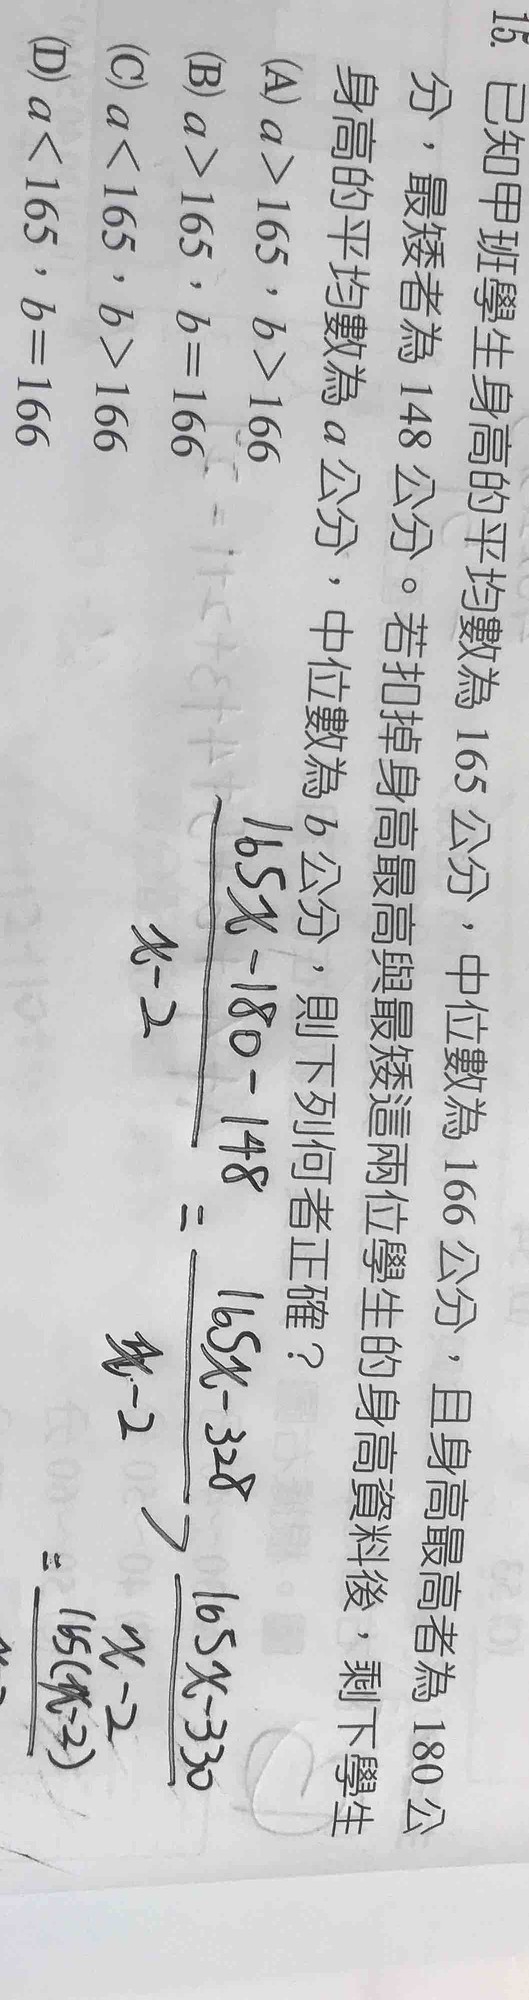 15. 已知甲班學生身高的平均數為 165 公分，中位數為 166 公分，且身高最高者為 180 公
分，最矮者為 148 公分。若扣掉身高最高與最矮這兩位學生的身高資料後，剩下學生
身高的平均數為 a 公分，中位數為 b 公分，則下列何者正確？
(A) a＞165，b＞166
(B) a＞165，b＝166
(C) a＜165，b＞166
(D) a＜165，b＝166
165x-180-148
x-2
=
165x-328
x-2
>
165x-330
x-2
=
165(x-2)